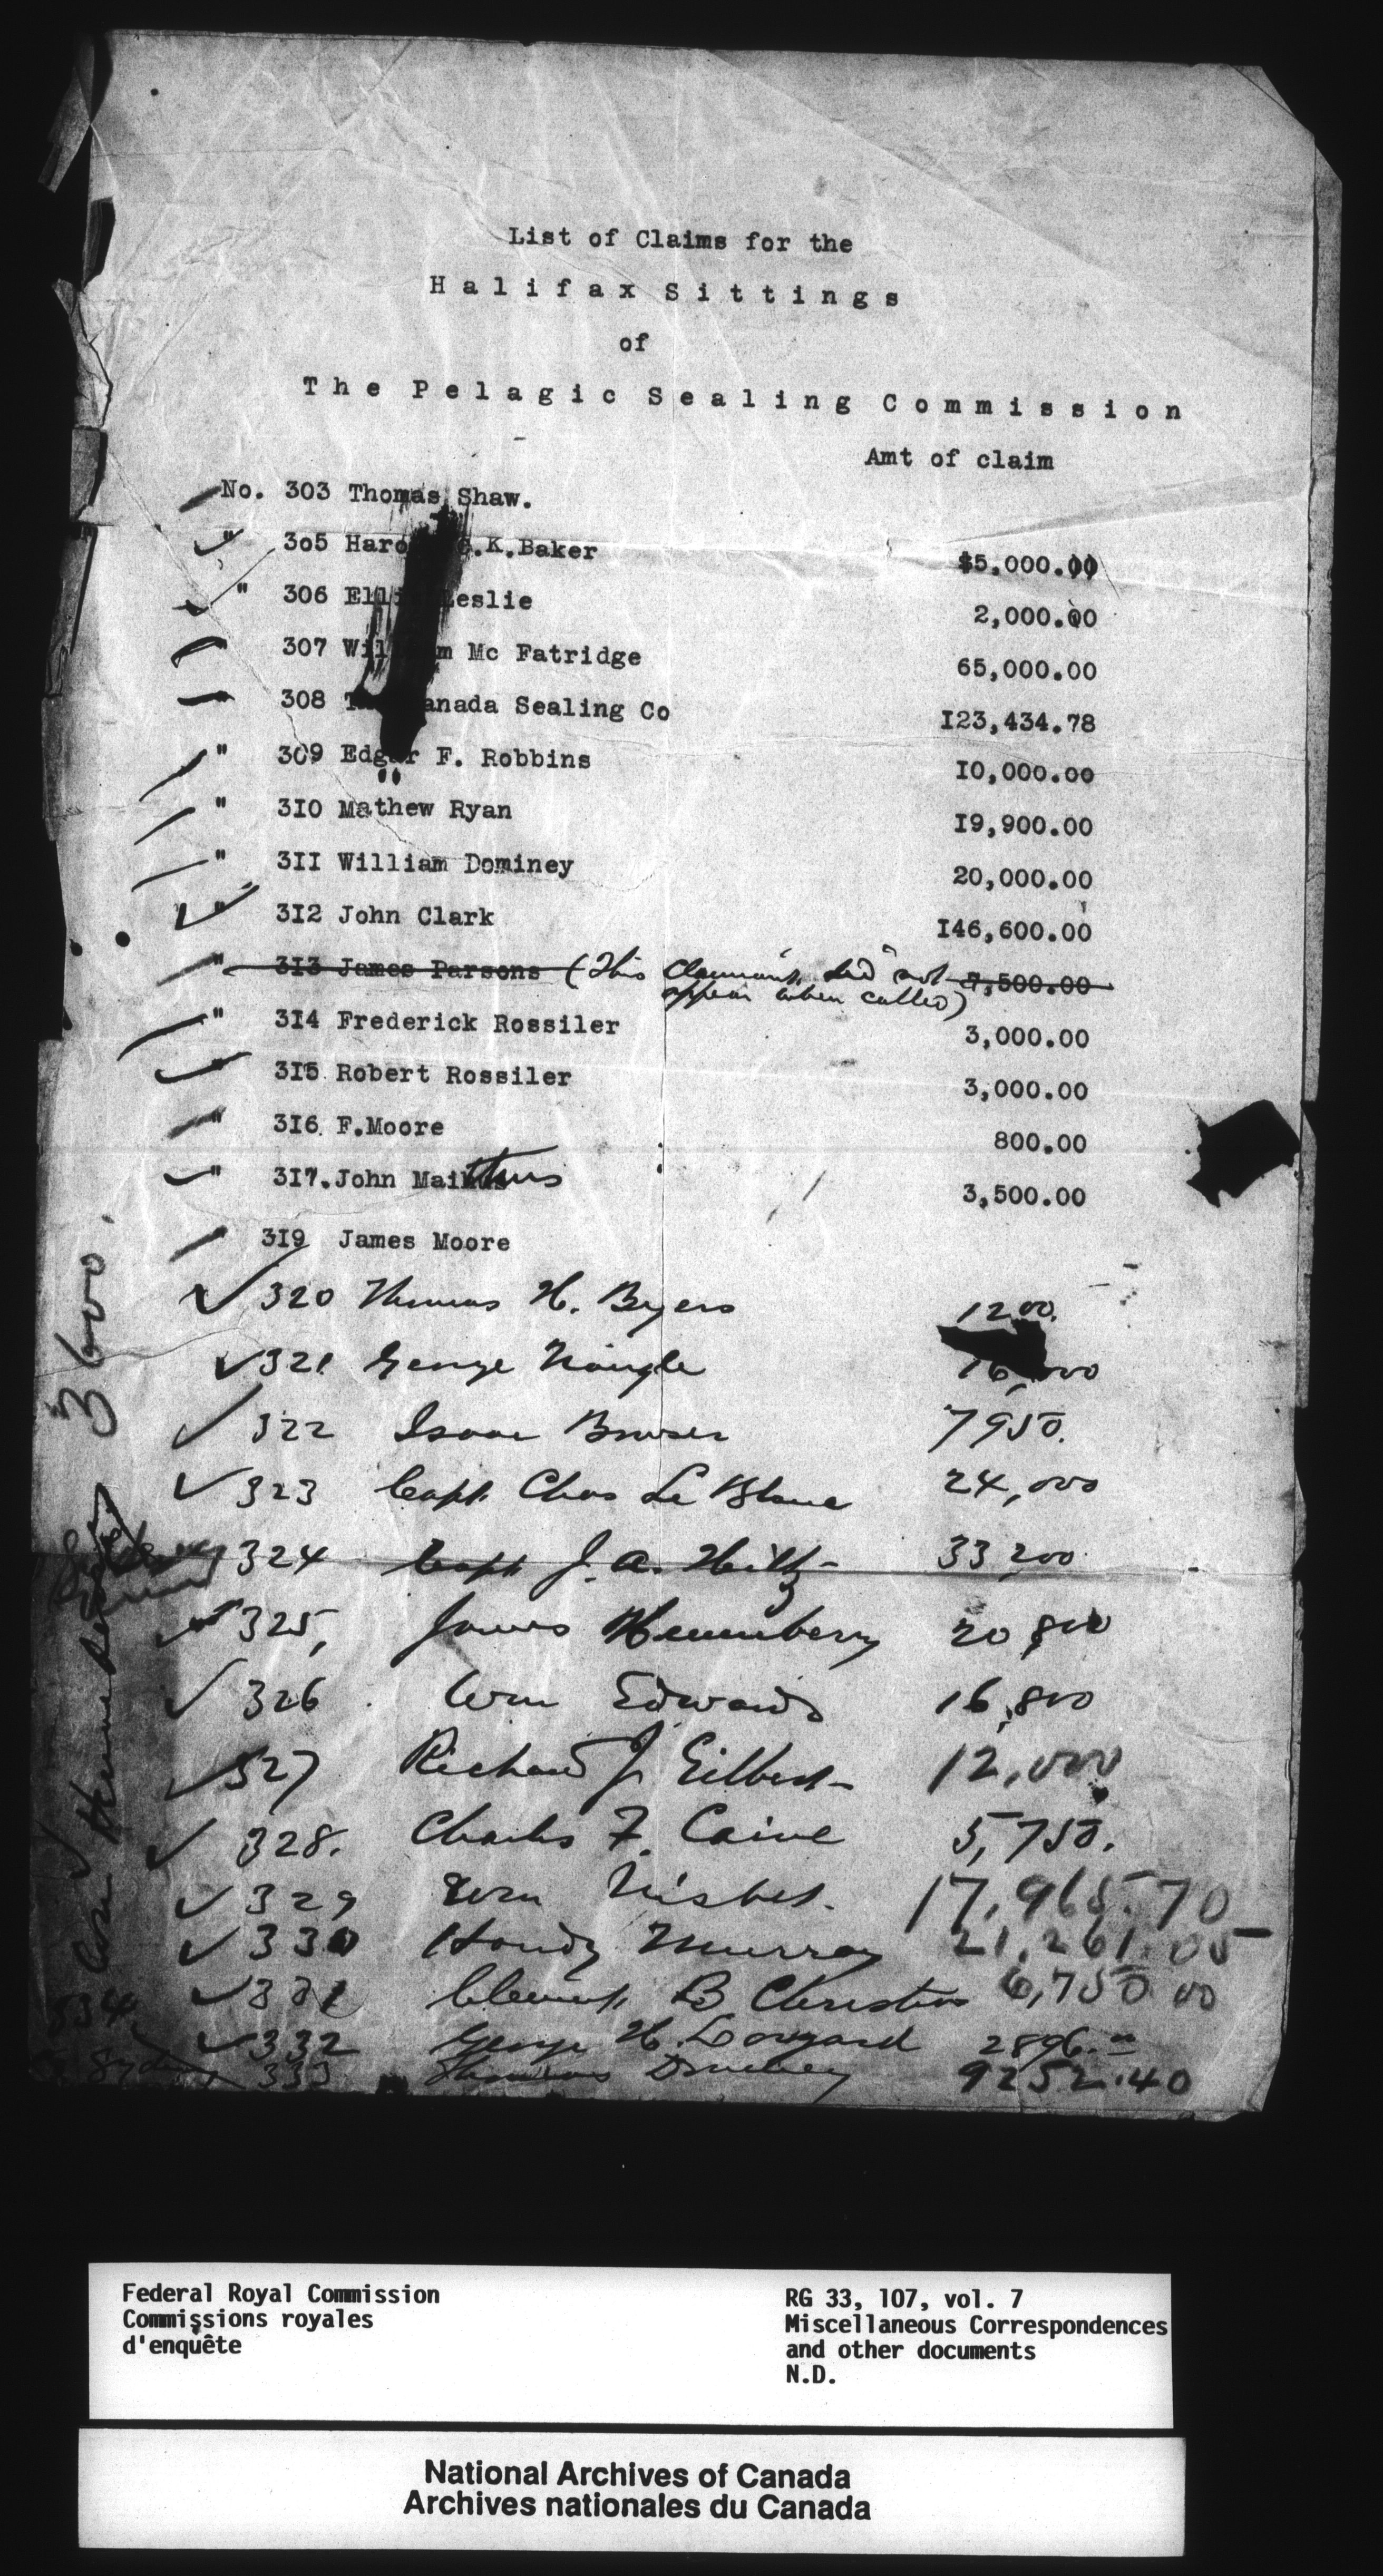 List of Claims for the
Halifax Sittings
of
The Pelagic Sealing Commission
Amt of claim
No. 303 Thomas Shaw.
" 305 Haro C.K.Baker $5,000.00
" 306 Elli Leslie 2,000.00
" 307 Wil m Mc Fatridge 65,000.00
" 308 T anada Sealing Co 123,434.78
" 309 Edgar F. Robbins 10,000.00
" 310 Mathew Ryan 19,900.00
" 311 William Dominey 20,000.00
" 312 John Clark 146,600.00
" 313 James Parsons (This claimant did not 7,500.00
appear when called)
" 314 Frederick Rossiler 3,000.00
" 315 Robert Rossiler 3,000.00
" 316. F.Moore 800.00
" 317. John Maithus 3,500.00
319 James Moore
320 Thomas H. Byers 1200.
321 George Naugle 16,000
322 Isaac 7950.
323 Capt. Chas Le Blanc 24,000
324 Capt J. A. Hiltz 33,200
325, James Hennebery 20,800
326 Wm Edwards 16,800
327 Richard J. Gilbert 12,000
328. Charles F. Caine 5,750.
329 Wm Nisbet. 17,965.70
330 Murray 21,261.05
331 Clement B Christian 6,750.00
332 George H. Longard 2896.00
333 Thomas 9252.40
3600.
334
Federal Royal Commission
Commissions royales
d'enquête
RG 33, 107, vol. 7
Miscellaneous Correspondences
and other documents
N.D.
National Archives of Canada
Archives nationales du Canada